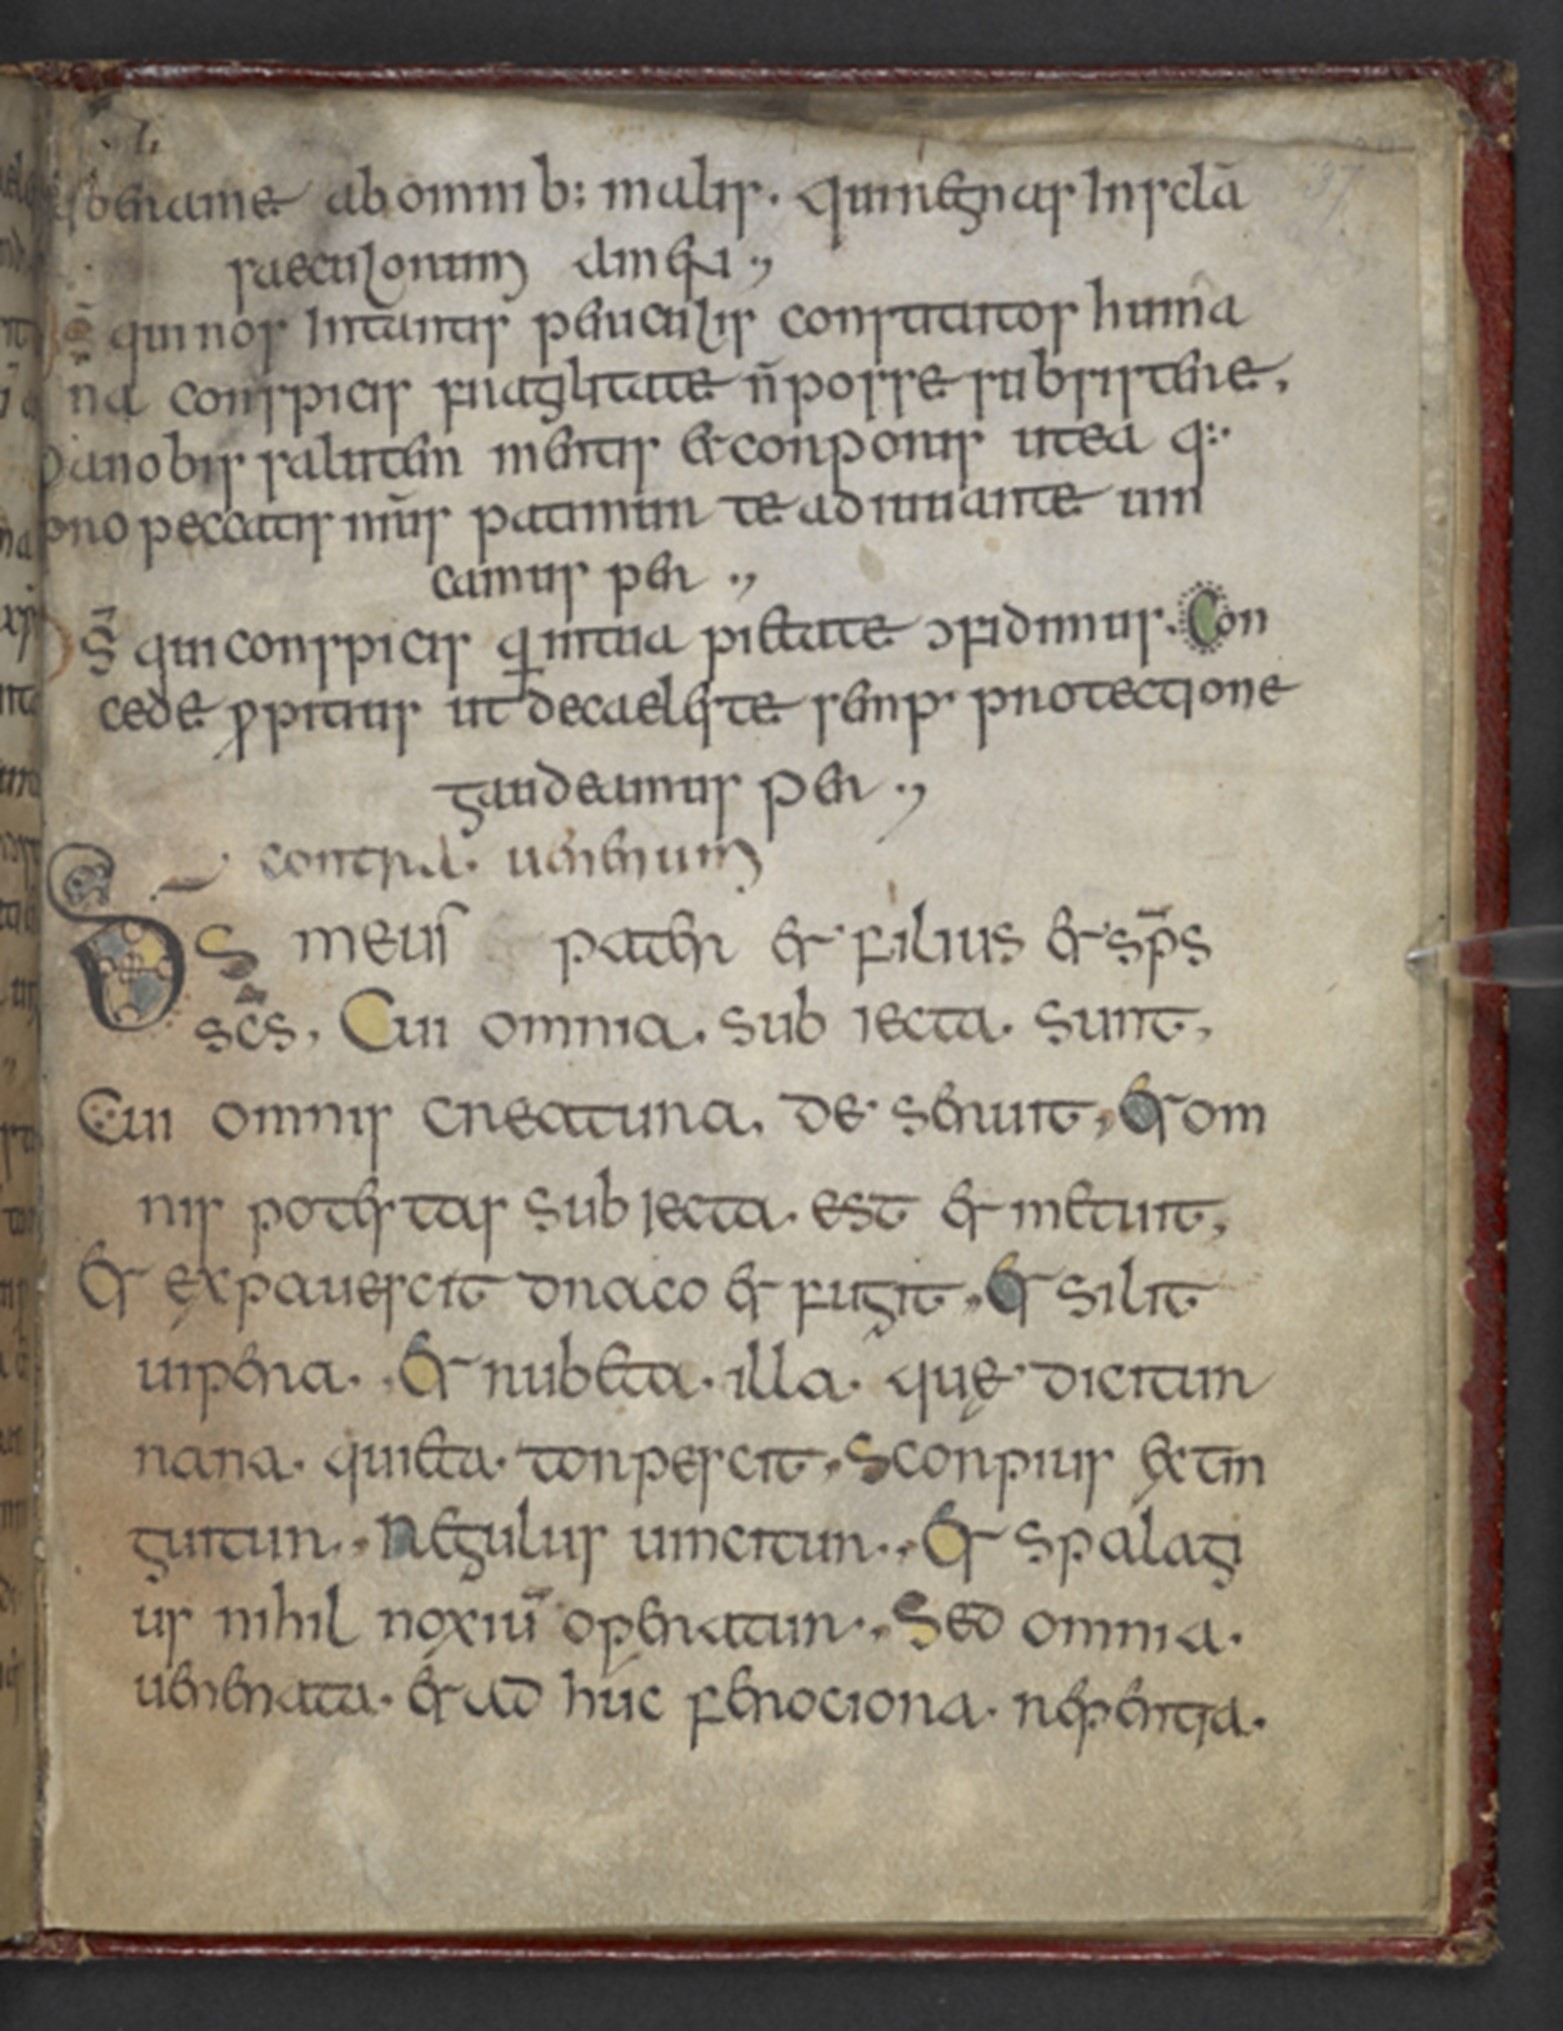 liberame ab omnib: malis. qui regnas in sclā
saeculorum am̄ 
d̄s qui nos in tantis periculis constitutos humā
na conspicis fragilitate n̄ posse subsistere,
Da nobis salutem mentis et conporis ut ea q:
pro peccatis nr̄is patimur te adiuuante uin
camus per
d̄s qui conspicis q in tua pietate ɔfidimus. Con
cede ꝓpitius ut de caeleste semp protectione
gaudeamus per
contra. uenenum
D̄s meus pater et filius et sp̄s
sc̄s, Cui omnia. sub iecta. sunt,
Cui omnis creatura. de seruit, et om
nis potestas subiecta. est et metuit,
et expauescit draco et fugit, et silit
uipera. et rubeta. illa. quę dicitur
rana. quieta. torpescit, Sconpius extin
guitur, Regulus uincitur, et spalagi
us nihil noxiū operatur, Sed omnia.
uenenata. et ad huc ferociora. repentia.
37